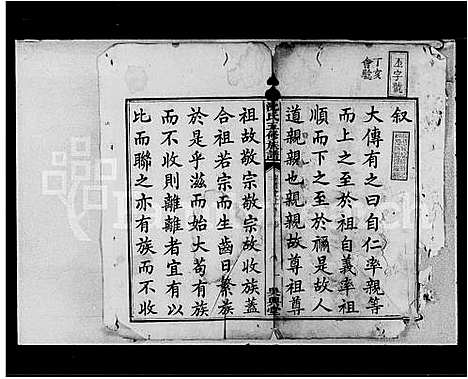 丁亥
叙
大傳有之曰自仁率親等
而上之至於祖自義率祖
順而下之至於禰是故人
道親親也親親故尊祖尊
沈氏五修族譜
吳興堂
祖故敬宗敬宗故收族蓋
合祖若宗而生齒日繁族
於是乎滋而始大苟有族
而不收則離離者宜有以
比而聯之亦有族而不收